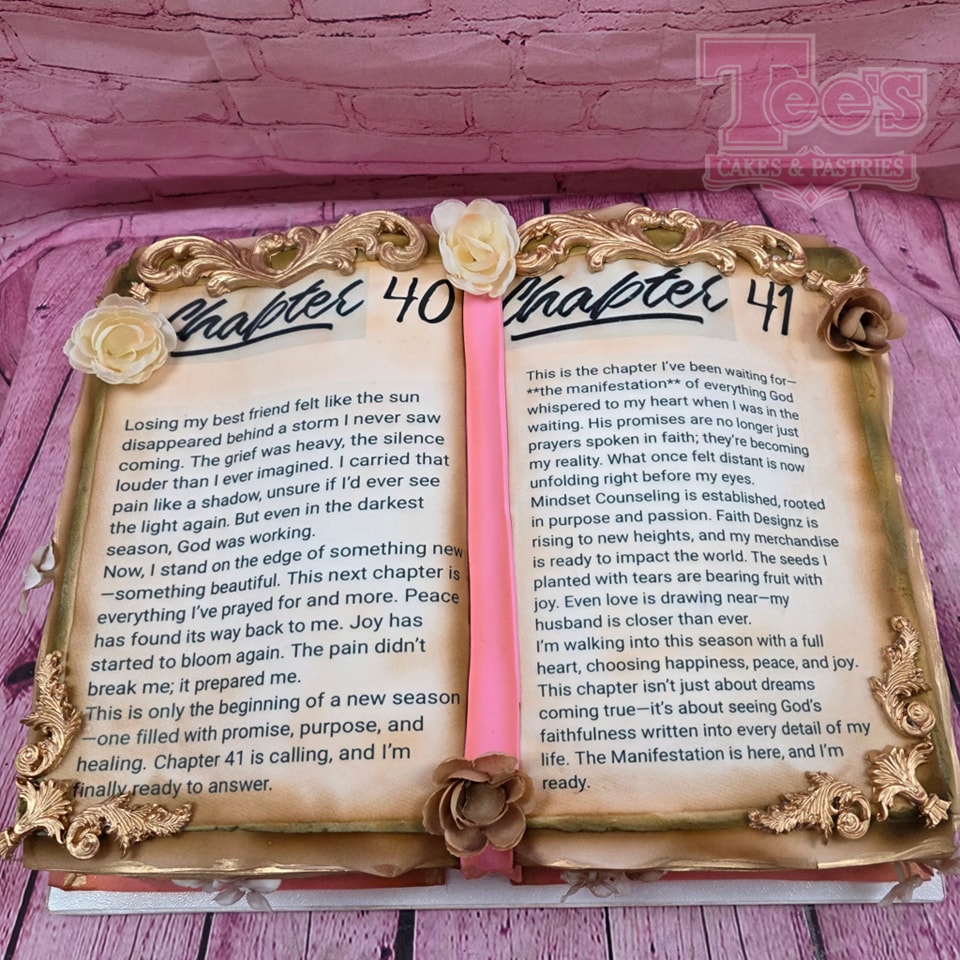 Tee's
CAKES & PASTRIES
Chapter 40
Losing my best friend felt like the sun
disappeared behind a storm I never saw
coming. The grief was heavy, the silence
louder than I ever imagined. I carried that
pain like a shadow, unsure if I'd ever see
the light again. But even in the darkest
season, God was working.
Now, I stand on the edge of something new
—something beautiful. This next chapter is
everything I've prayed for and more. Peace
has found its way back to me. Joy has
started to bloom again. The pain didn't
break me; it prepared me.
This is only the beginning of a new season
—one filled with promise, purpose, and
healing. Chapter 41 is calling, and I'm
finally ready to answer.
Chapter 41
This is the chapter I've been waiting for—
**the manifestation** of everything God
whispered to my heart when I was in the
waiting. His promises are no longer just
prayers spoken in faith; they're becoming
my reality. What once felt distant is now
unfolding right before my eyes.
Mindset Counseling is established, rooted
in purpose and passion. Faith Designz is
rising to new heights, and my merchandise
is ready to impact the world. The seeds I
planted with tears are bearing fruit with
joy. Even love is drawing near—my
husband is closer than ever.
I'm walking into this season with a full
heart, choosing happiness, peace, and joy.
This chapter isn't just about dreams
coming true—it's about seeing God's
faithfulness written into every detail of my
life. The Manifestation is here, and I'm
ready.